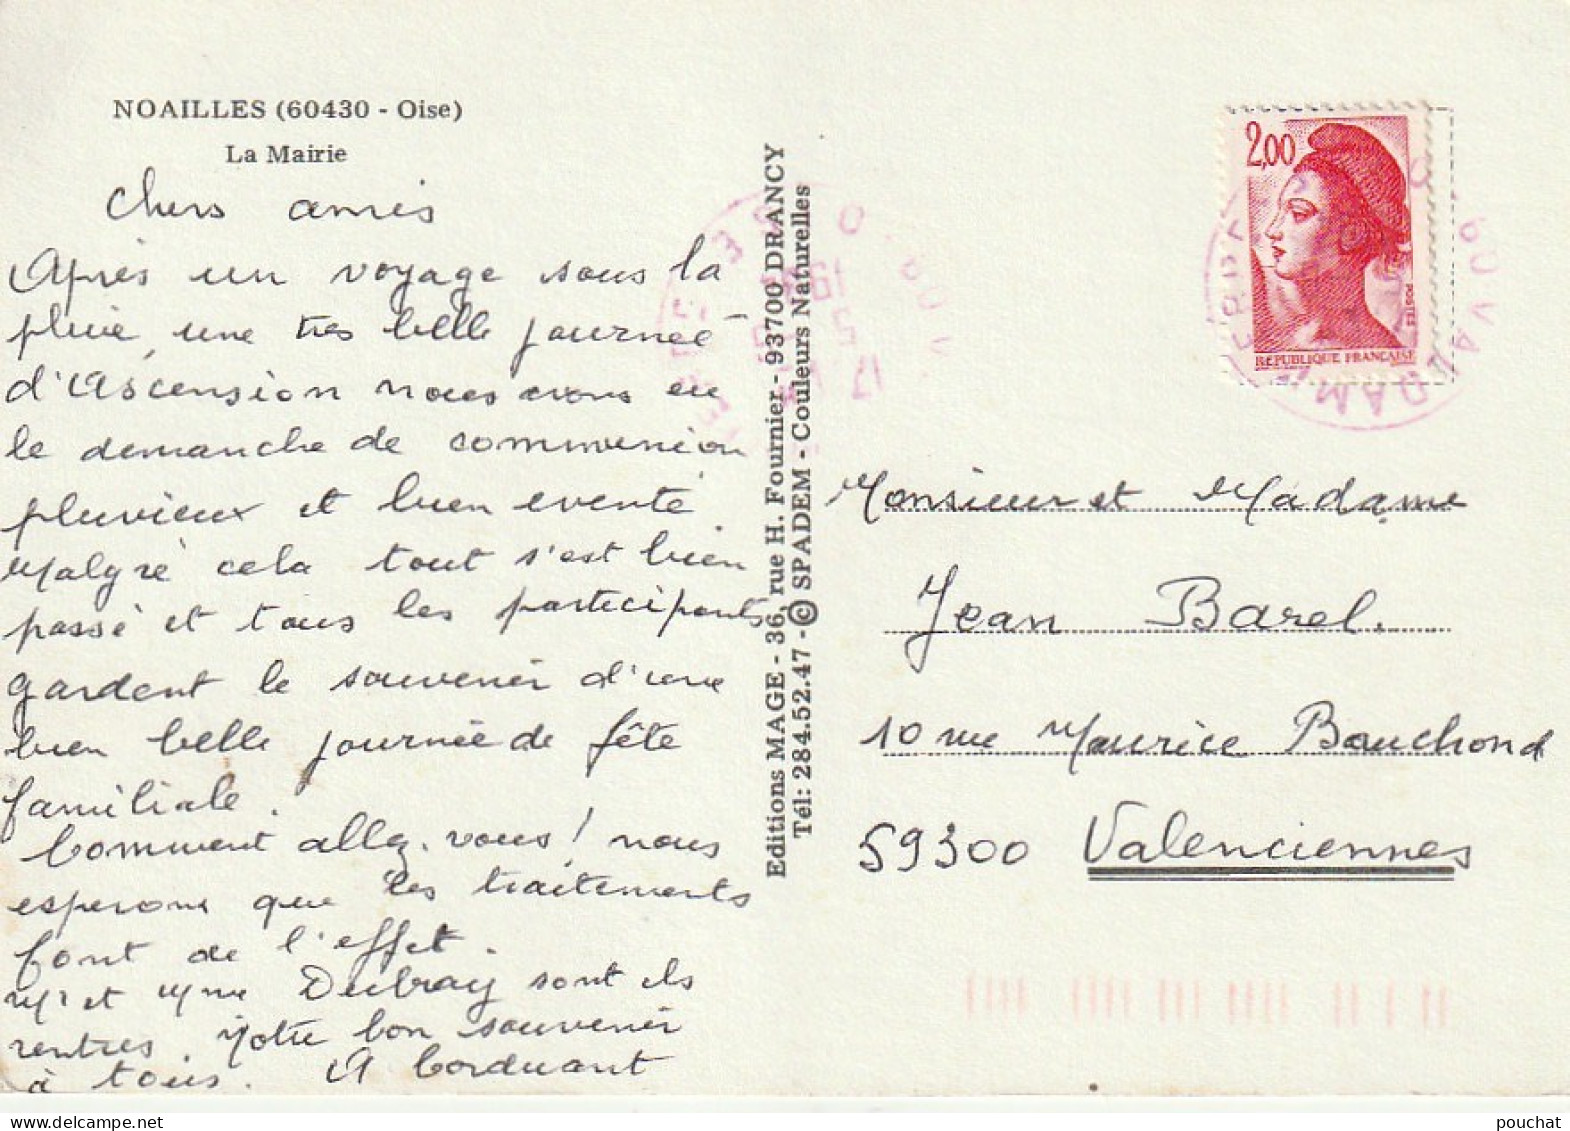 NOAILLES (60430 - Oise)
La Mairie
Chers amis
Après un voyage sous la
pluie, une tres belle journée
d'Ascension nous avons eu
le demanche de communion
pluvieux et bien eventé
Malgré cela tout s'est bien
passé et tous les participants
gardent le souvenir d'une
bien belle journée de fête
familiale.
Comment allez. vous! nous
esperons que les traitements
font de l'effet.
Mr et Mme Dubray sont ils
rentres. Notre bon souvenir
à tous. A Corduant
Editions MAGE - 36, rue H. Fournier - 93700 DRANCY
Tél: 284.52.47 - © SPADEM - Couleurs Naturelles
2,00
POSTES
REPUBLIQUE FRANÇAISE
Monsieur et Madame
Jean Barel.
10 rue Maurice Bauchond
59300 Valenciennes
pouchat